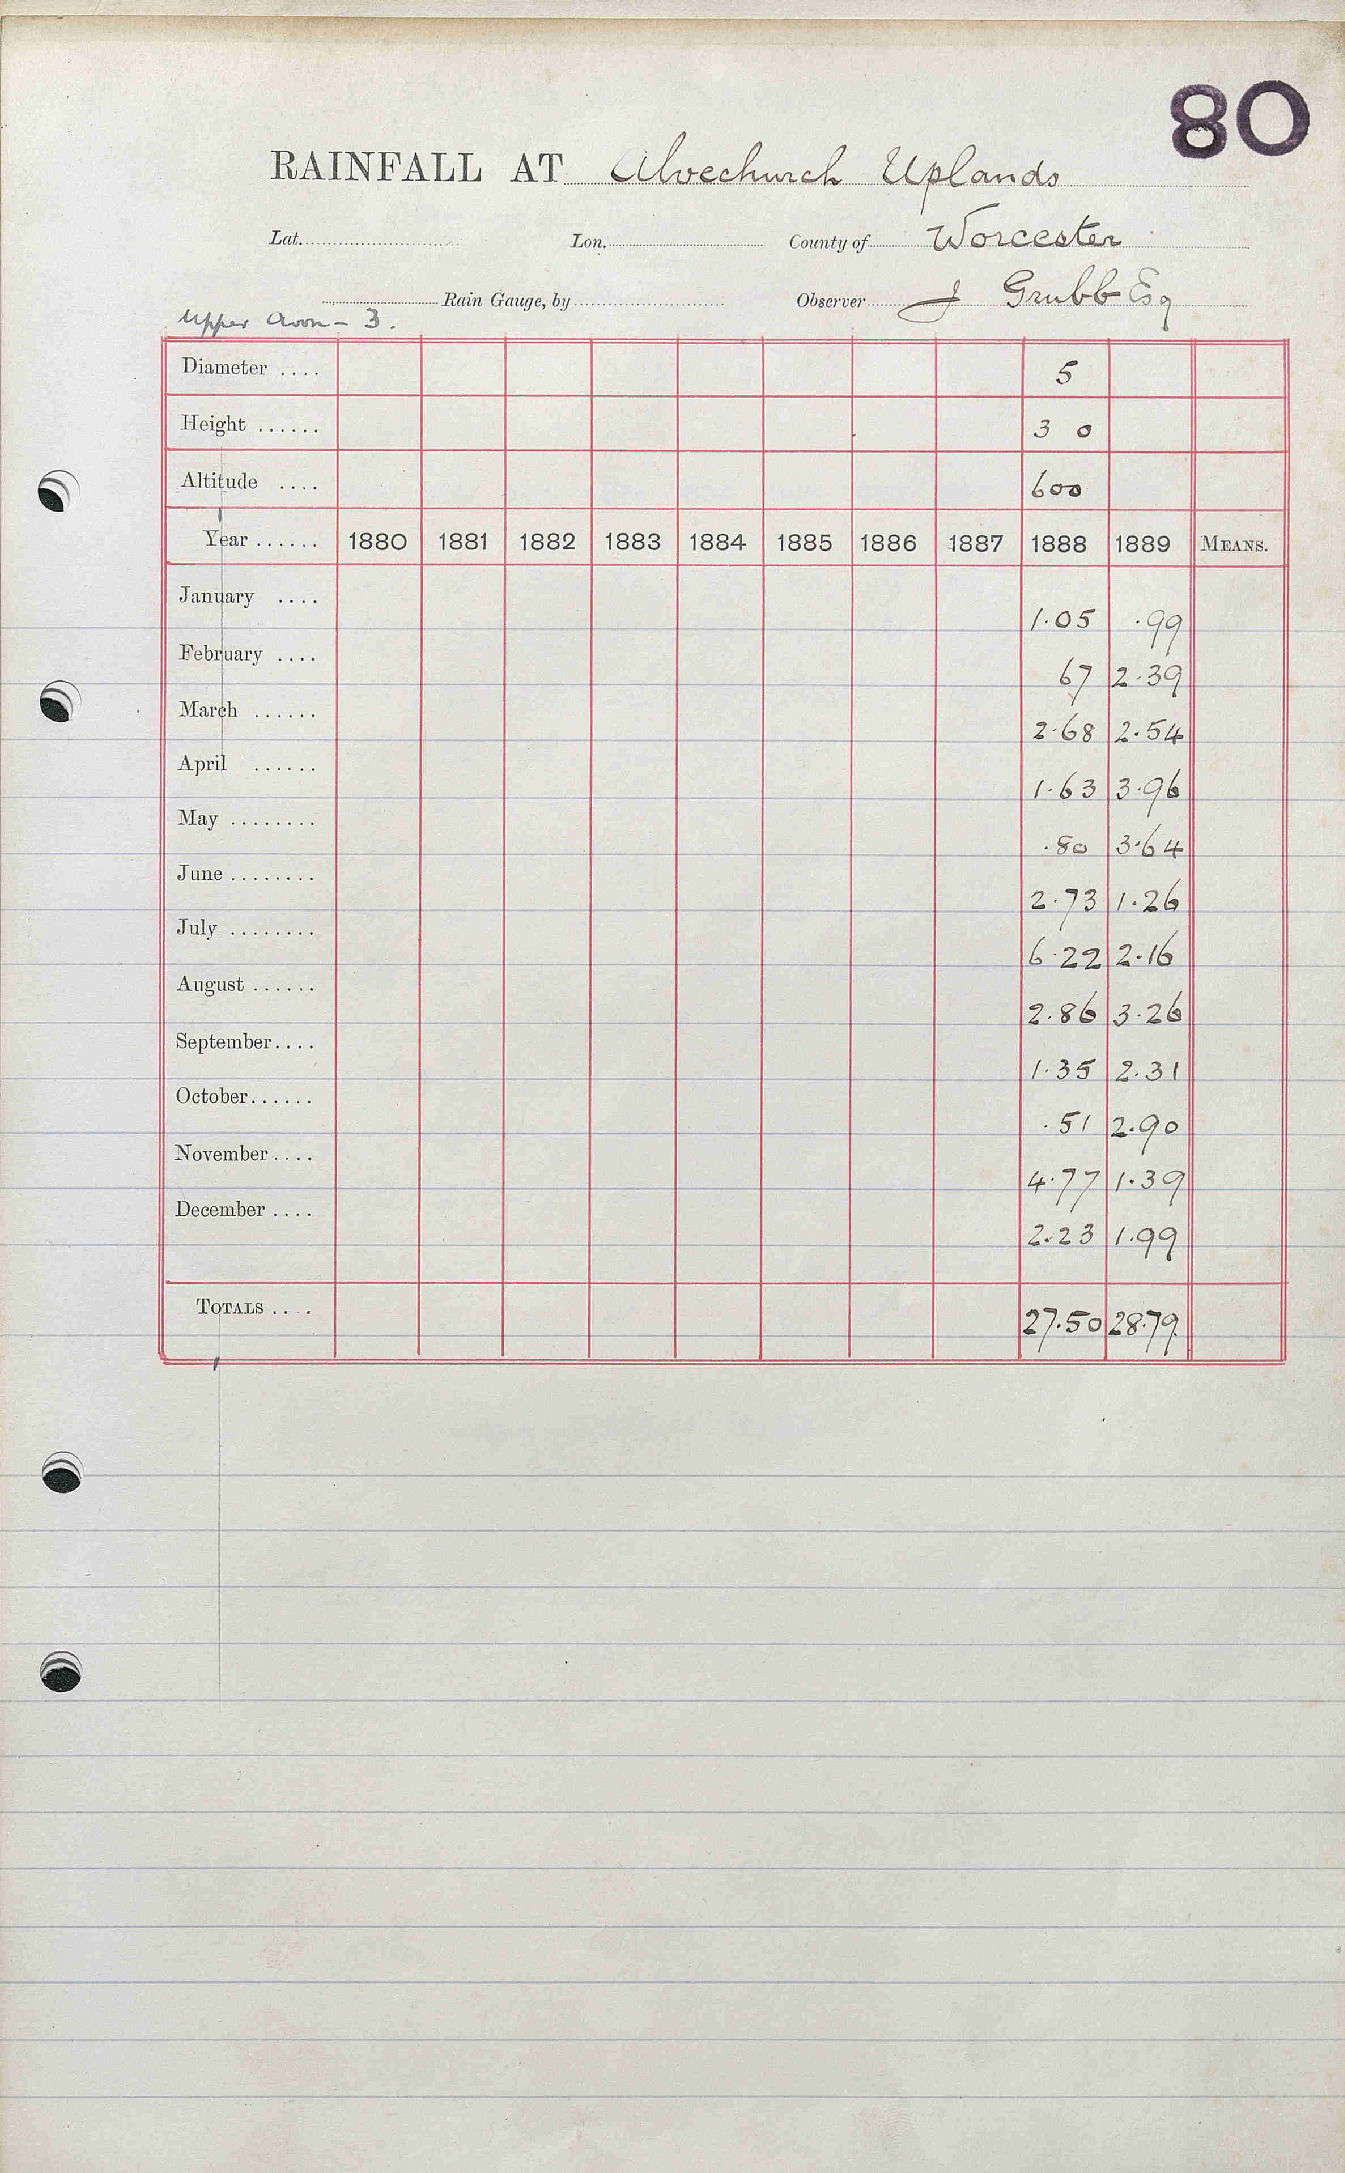 80
RAINFALL AT Alvechurch Uplands
Lat. Lon. County of Worcester
Rain Gauge, by Observer J Grubb Esq
Upper Avon - 3.
Diameter .... 5
Height ...... 3 0
Altitude .... 600
Year ...... 1880 1881 1882 1883 1884 1885 1886 1887 1888 1889 MEANS.
January .... 1.05 .99
February .... 67 2.39
March ...... 2.68 2.54
April ...... 1.63 3.96
May ........ .80 3.64
June ........ 2.73 1.26
July ........ 6.22 2.16
August ...... 2.86 3.26
September .... 1.35 2.31
October ...... .51 2.90
November .... 4.77 1.39
December .... 2.23 1.99
TOTALS .... 27.50 28.79